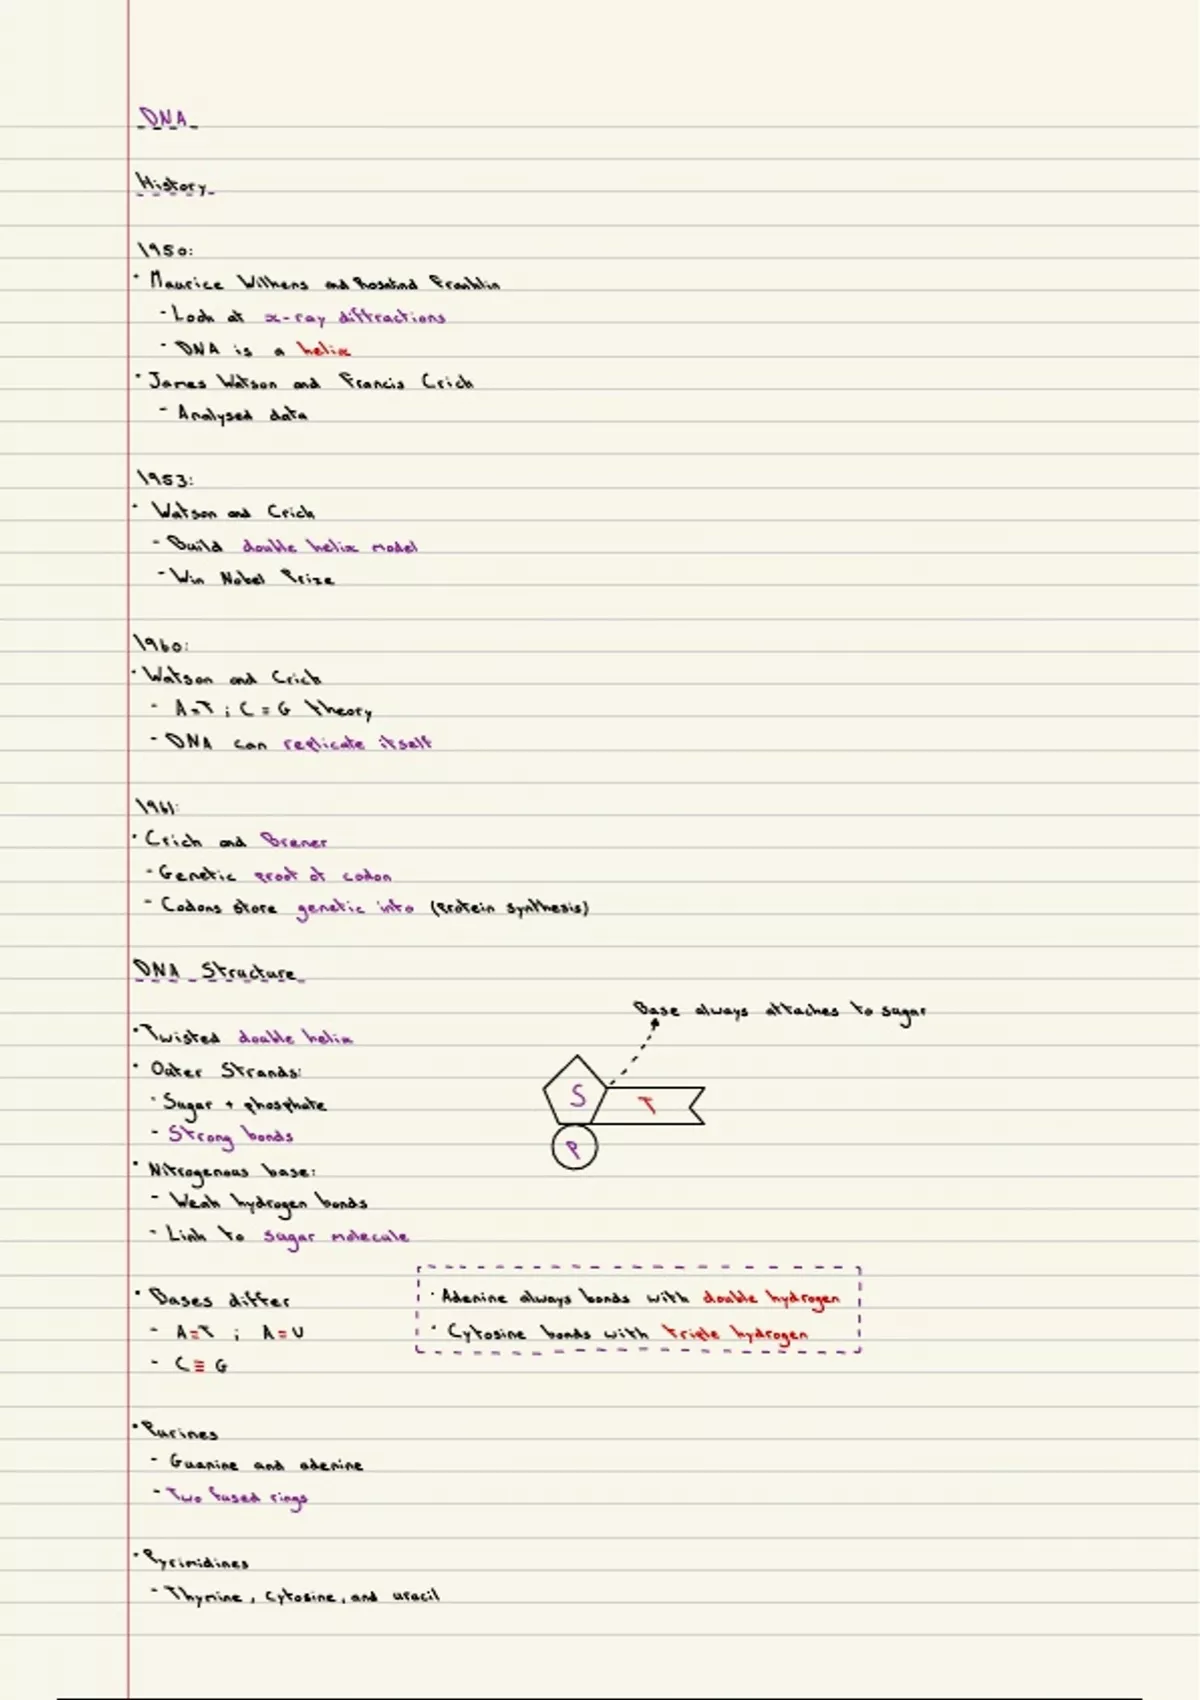 DNA
History
1950:
· Maurice Wilkens and Rosalind Franklin
- Look at x-ray diffractions
- DNA is a helix
· James Watson and Francis Crick
- Analysed data
1953:
· Watson and Crick
- Build double helix model
- Win Nobel Prize
1960:
· Watson and Crick
- A=T ; C=G theory
- DNA can replicate itself
1961:
· Crick and Brener
- Genetic proof of codon
- Codons store genetic info (protein synthesis)
DNA Structure
Base always attaches to sugar
· Twisted double helix
· Outer Strands:
· Sugar + phosphate
- Strong bonds
S
T
P
· Nitrogenous base:
- Weak hydrogen bonds
- Link to sugar molecule
· Bases differ
- A=T ; A=U
- C≡G
· Adenine always bonds with double hydrogen
· Cytosine bonds with triple hydrogen
· Purines
- Guanine and adenine
- Two fused rings
· Pyrimidines
- Thymine, cytosine, and uracil